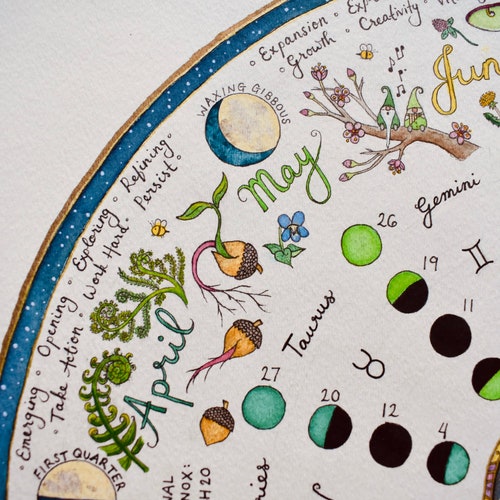 Expansion • Explor
Growth • Creativity
Gemini
WAXING GIBBOUS
Jun
May
Emerging • Opening • Exploring • Refining
• Take Action • Work Hard • Persist •
April
FIRST QUARTER
Gemini
♊
26
19
11
Taurus
♉
27
20
12
4
NOX:
H20